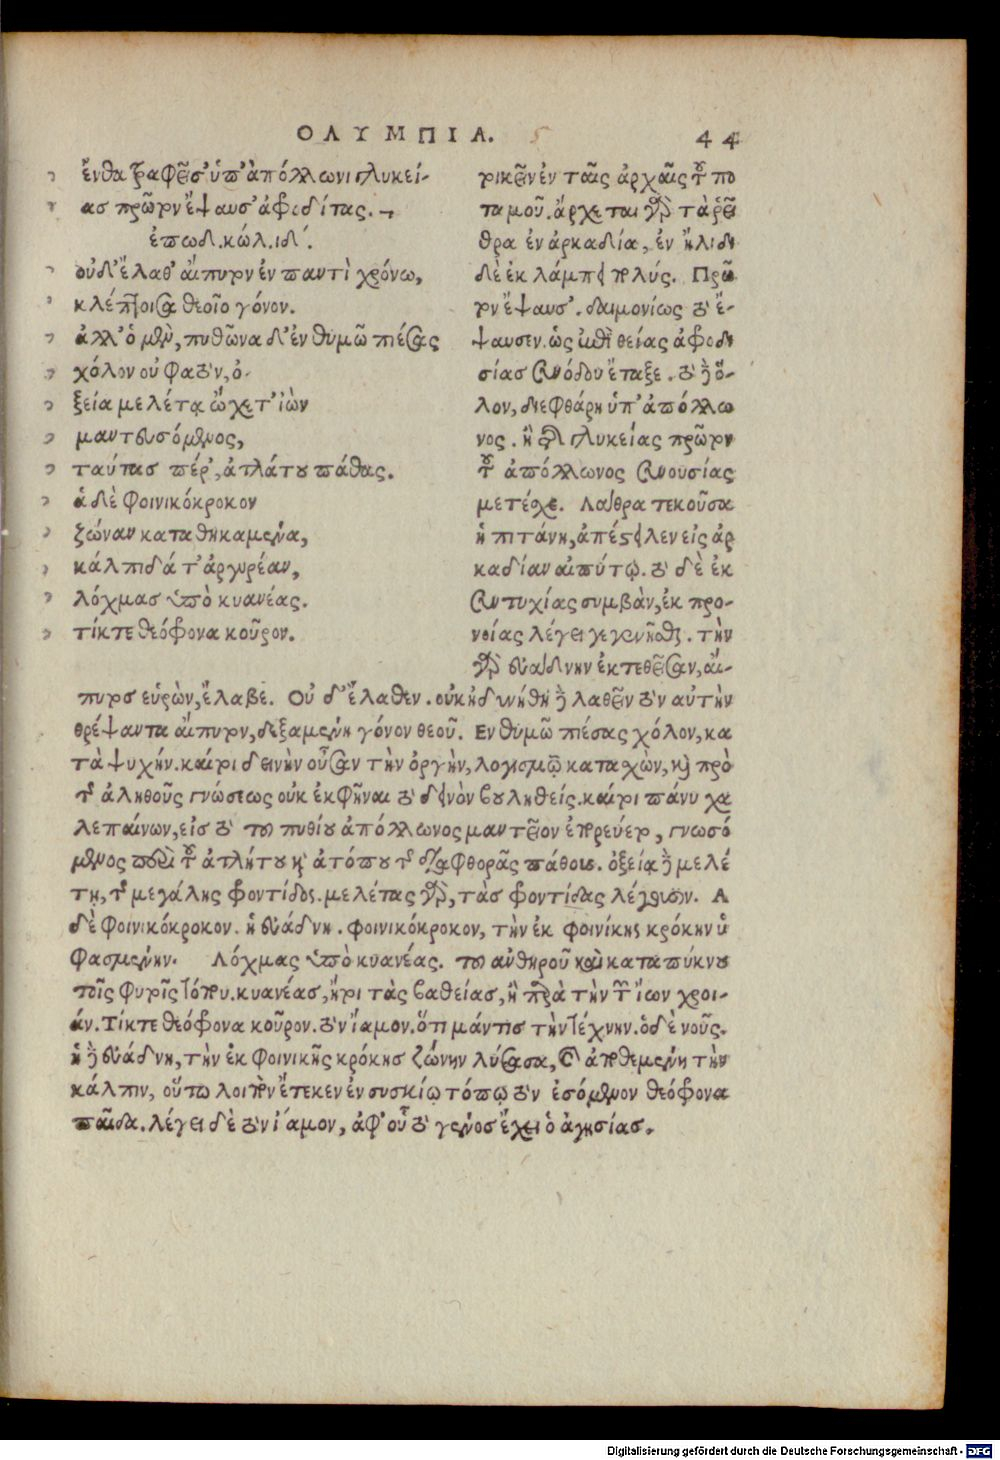 ΟΛΥΜΠΙΑ. 44
ἔνθα τραφεῖσ' ὑπ' ἀπόλλωνι γλυκεί-
ας πρῶτον ἔψαυσ' ἀφροδίτας.
ἐπωδ. κώλ. ιδ´.
οὐδ' ἔλαθ' αἴπυτον ἐν παντὶ χρόνω,
κλέπτοισα θεοῖο γόνον.
ἀλλ' ὁ μὲν, πυθῶνα δ' ἐν θυμῶ πιέσας
χόλον οὐ φατὸν, ὀ-
ξεία μελέτᾳ ᾤχετ' ἰὼν
μαντευσόμενος,
ταύτας πέρ', ἀτλάτου πάθας.
ἁ δὲ φοινικόκροκον
ζώναν καταθηκαμένα,
κάλπιδά τ' ἀργυρέαν,
λόχμας ὑπὸ κυανέας.
τίκτε θεόφρονα κοῦρον.
ρικεῖν ἐν ταῖς ἀρχαῖς τοῦ πο
ταμοῦ. ἄρχεται γὰρ τὰ ῥεῖ
θρα ἐν ἀρκαδία, ἐν ἤλιδι
δὲ ἐκλάμπει πολύς. Πρῶ
τον ἔψαυσ'. δαιμονίως τὸ ἔ-
ψαυσεν. ὡς ἐπὶ θείας ἀφροδι
σίας συνόδου ἔταξε. τὸ δὲ ὅ-
λον, διεφθάρη ὑπ' ἀπόλλω
νος. ἢ οὕτω γλυκείας πρῶτον
τοῦ ἀπόλλωνος συνουσίας
μετέσχε. Λάθρα τεκοῦσα
ἡ πιτάνη, ἀπέστειλεν εἰς ἀρ
καδίαν αἰπύτῳ. τὸ δὲ ἐκ
συντυχίας συμβὰν, ἐκ προ-
νοίας λέγει γεγενῆσθαι. τὴν
γὰρ εὐάδνην ἐκτεθεῖσαν, αἴ-
πυτος εὑρὼν, ἔλαβε. Οὐ δ' ἔλαθεν. οὐκ ἠδυνήθη δὲ λαθεῖν τὸν αὐτὴν
θρέψαντα αἴπυτον, δεξαμένη γόνον θεοῦ. Εν θυμῶ πιέσας χόλον, κα
τὰ ψυχήν. καίτοι δεινὴν οὖσαν τὴν ὀργὴν, λογισμῷ καταχὼν, καὶ πρὸ
τῆς ἀληθοῦς γνώσεως οὐκ ἐκφῆναι τὸ δεινὸν βουληθείς. καίτοι πάνυ χα
λεπαίνων, εἰς τὸ τοῦ πυθίου ἀπόλλωνος μαντεῖον ἐπορεύετο, γνωσό
μενος περὶ τοῦ ἀτλήτου καὶ ἀτόπου τῆς διαφθορᾶς πάθους. ὀξείᾳ δὲ μελέ
τη, τῆς μεγάλης φροντίδος. μελέτας γὰρ, τὰς φροντίδας λέγουσιν. Α
δὲ φοινικόκροκον. ἡ εὐάδνη. φοινικόκροκον, τὴν ἐκ φοινίκης κρόκην ὑ
φασμένην. Λόχμας ὑπὸ κυανέας. τοῦ ἀνθηροῦ καὶ καταπύκνου
τοῖς φυτοῖς τόπου. κυανέας, ἤτοι τὰς βαθείας, ἢ παρὰ τὴν τῶν ἴων χροι-
άν. Τίκτε θεόφρονα κοῦρον. τὸν ἴαμον. ὅτι μάντις τὴν τέχνην. ὁ δὲ νοῦς.
ἡ δὲ εὐάδνη, τὴν ἐκ φοινικῆς κρόκης ζώνην λύσασα, καὶ ἀποθεμένη τὴν
κάλπιν, οὕτω λοιπὸν ἔτεκεν ἐν συσκίῳ τόπῳ τὸν ἐσόμενον θεόφρονα
παῖδα. λέγει δὲ τὸν ἴαμον, ἀφ' οὗ τὸ γένος ἔχει ὁ ἀγησίας.
Digitalisierung gefördert durch die Deutsche Forschungsgemeinschaft - DFG